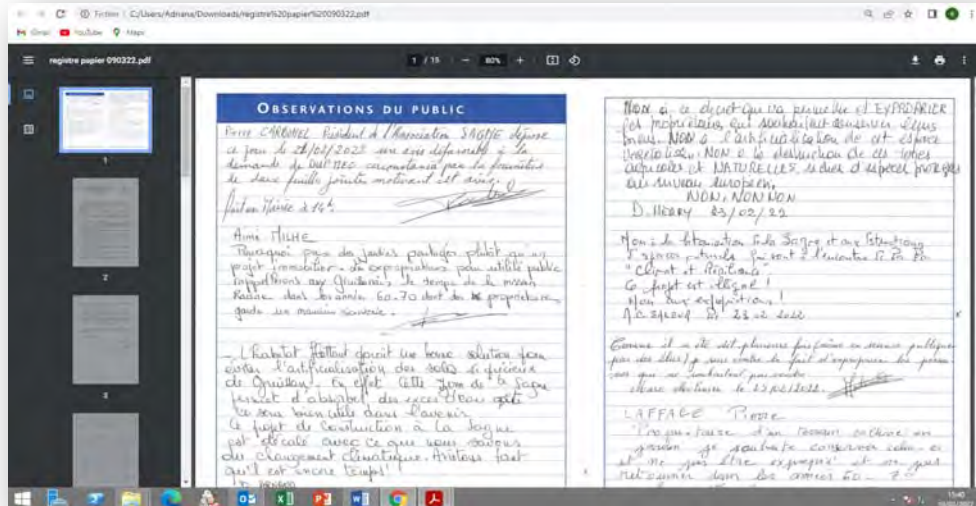 Fichier | C:/Users/Adriana/Downloads/registre%20papier%20090322.pdf
Gmail YouTube Maps
registre papier 090322.pdf
1 / 15 — 80% +
1
2
3
OBSERVATIONS DU PUBLIC
Président de l'Association SAGNE dépose
ce jour le 21/02/2022 un avis défavorable à la
demande de circonstancié par la fourniture
de deux feuilles jointes motivant cet avis.
Fait en Mairie à 14h.
Aimé MILHE
Pourquoi pas des jardins partagés plutôt qu'un
projet immobilier. expropriations pour utilité publique
rappelleront aux Gruissanais le temps de la mission
Racine dans les années 60-70 dont des propriétaires
garde un mauvais souvenir.
- L'habitat flottant serait une bonne solution pour
éviter l'artificialisation des sols si précieux
de Gruissan. En effet cette zone de la Sagne
permet d'absorber des excès d'eau
ce sera bien utile dans l'avenir.
Ce projet de construction à la Sagne
est décalé avec ce que nous savons
du changement climatique. Arrêtons tant
qu'il est encore temps!
NON à ce décret qui va permettre d'EXPROPRIER
les propriétaires qui souhaitent conserver leurs
biens. NON à l'artificialisation de cet espace
végétalisé. NON à la destruction de ces terres
agricoles et NATURELLES, riches d'espèces protégées
au niveau européen.
NON, NON NON
D. 23/02/22
Non à la de la Sagne et aux
d'espaces naturels qui vont à l'encontre de la loi
"Climat et Résilience".
Ce projet est illégal!
Non aux expropriations!
23 02 2022
Comme il a été dit plusieurs fois en séance publique
par des élus, je suis contre le fait d'exproprier les person
nes qui ne souhaitent pas vendre.
le 23/02/2022.
LAFFAGE Pierre
Propriétaire d'un terrain cultivé en
jardin je souhaite conserver celui-ci
et ne pas être exproprié et ne pas
retourner dans les années 60-70
15:40